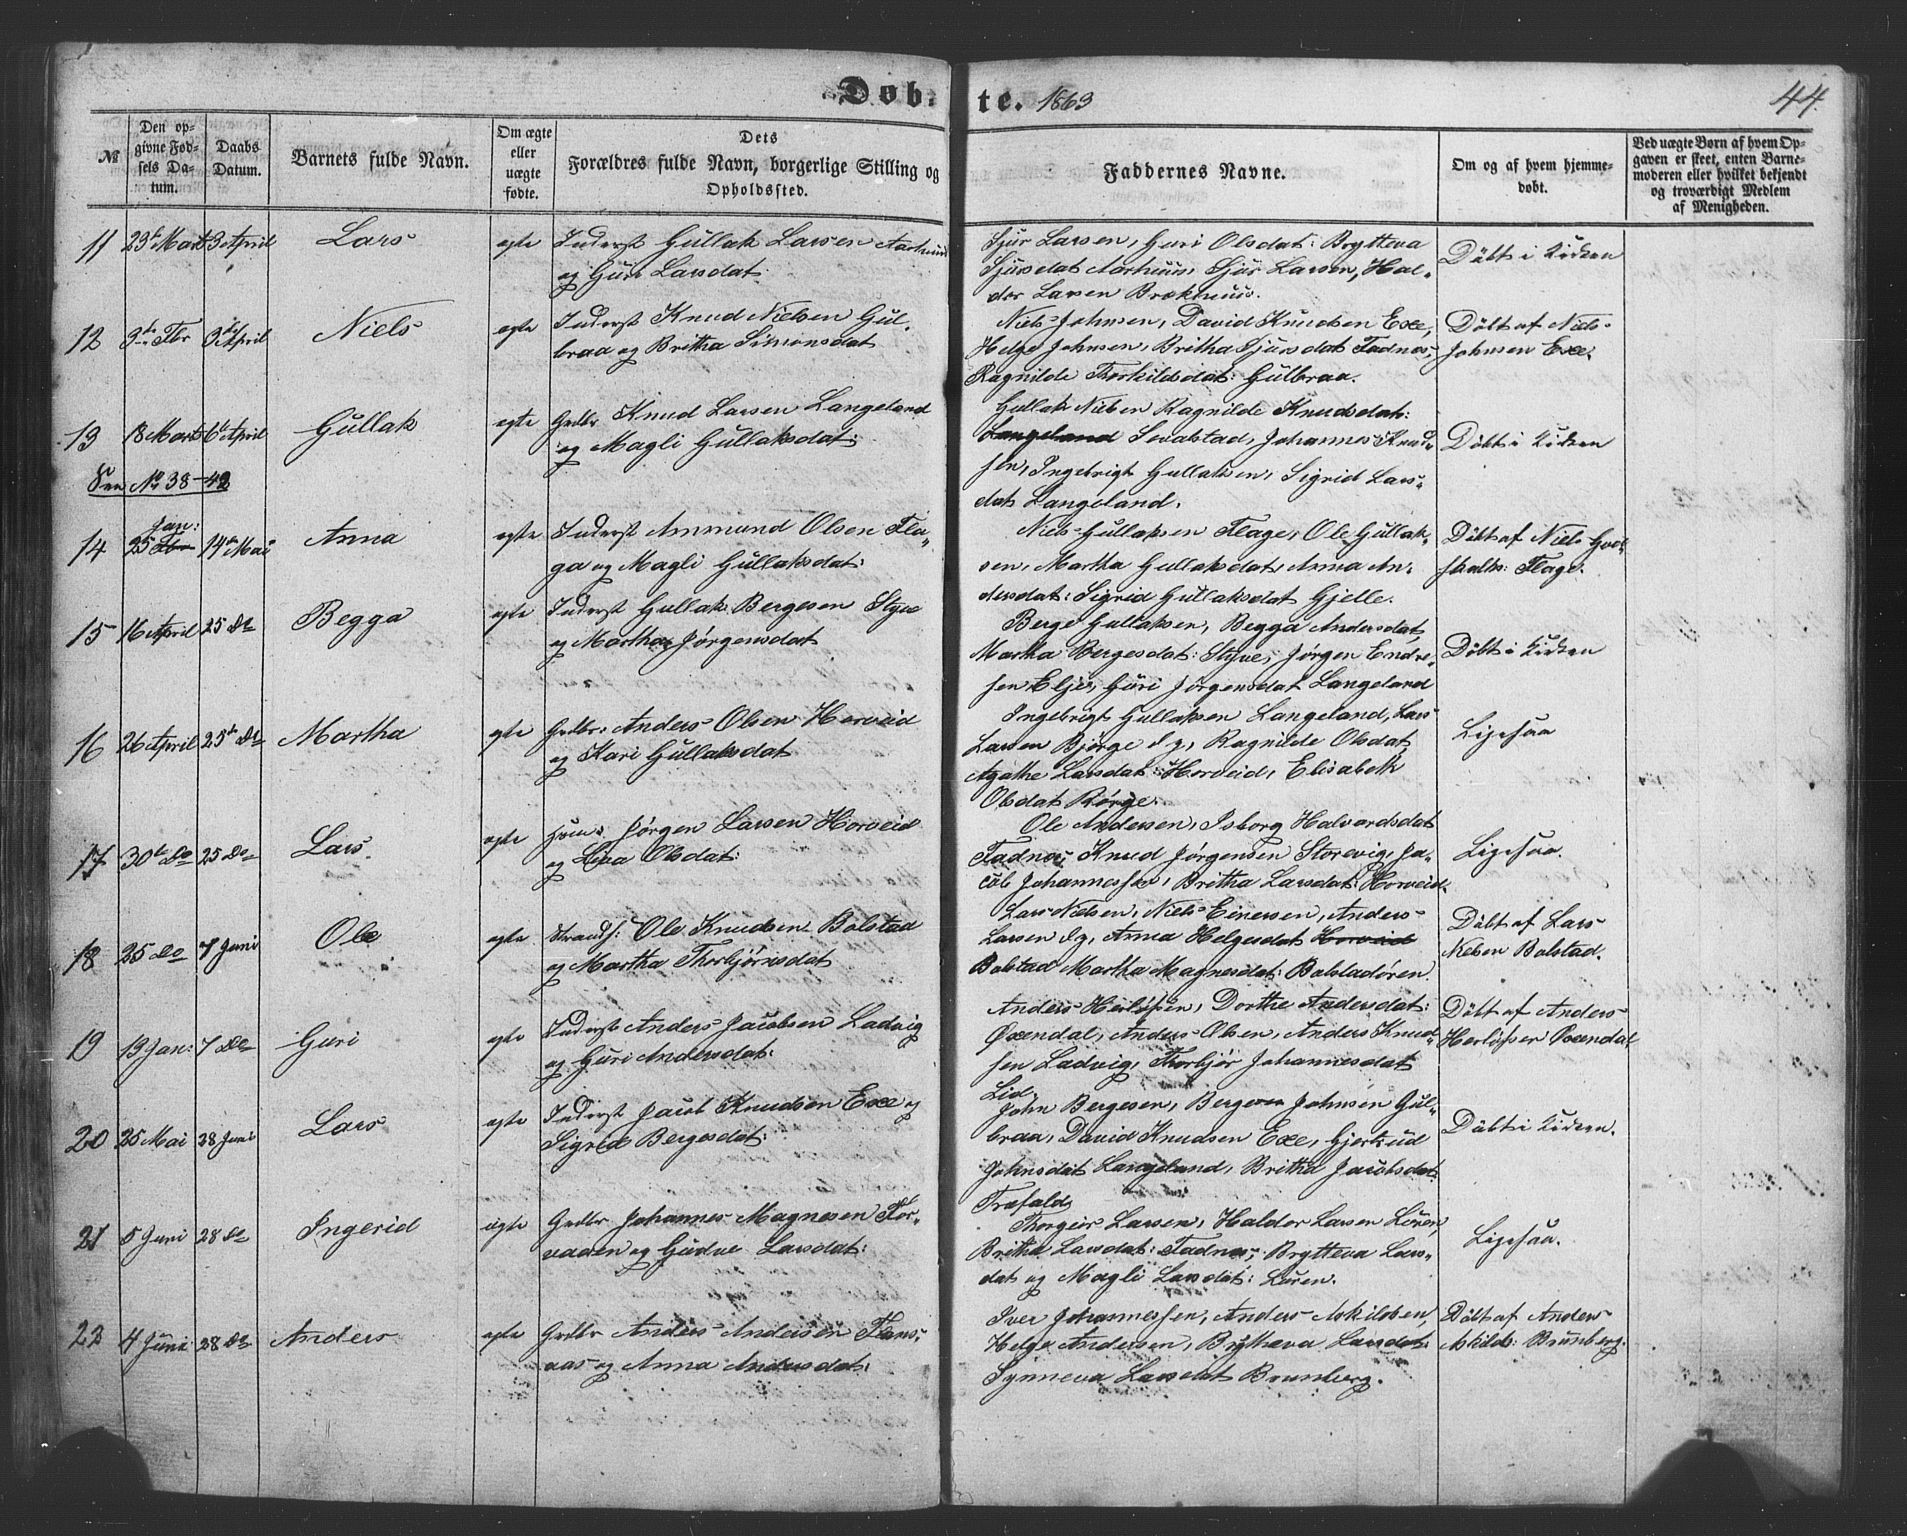 Døb-
te. 1863
44.
№
Den op-
givne Fød-
sels Da-
tum.
Daabs
Datum.
Barnets fulde Navn.
Om ægte
eller
uægte
fødte.
Dets
Forældres fulde Navn, borgerlige Stilling og
Opholdssted.
Faddernes Navne.
Om og af hvem hjemme-
døbt.
Ved uægte Børn af hvem Op-
gaven er skeet, enten Barne-
moderen eller hvilket bekjendt
og troværdigt Medlem
af Menigheden.
11 23de Marts 3 April Lars egte Inderst Gullak Larsen Aarhuus
og Guri Larsdat:
Sjur Larsen, Guri Olsdat: Brytteva
Sjursdat Aarhuus, Sjur Larsen, Hal-
dor Larsen Brækhuus.
Døbt i Kirken
12 3die Fbr 3die April Niels egte Inderst Knud Nielsen Gul-
braa og Britha Simonsdat
Niels Johnsen, David Knudsen Exe,
Helge Johnsen, Britha Sjursdat Fadnæs,
Ragnilde Thorkildsdat: Gulbraa.
Døbt af Niels
Johnsen Exe.
13 18 Marts 6te April Gullak egte Grdbr Knud Larsen Langeland
og Magli Gullaksdat:
Gullak Nielsen Ragnilde Knudsdat:
Langeland Sævlstad, Johannes Knud-
sen, Ingebrigt Gullaksen, Sigrid Lars-
dat Langeland.
Døbt i Kirken
See No 38-42
14 25 Jan: Fbr 14de Mai Anna egte Inderst Ammund Olsen Fla-
ga og Magli Gullaksdat:
Niels Gullaksen Flage, Ole Gullak-
sen, Martha Gullaksdat, Anna An-
dersdat: Sigrid Gullaksdat Gjelle.
Døbt af Niels God-
skalks: Flage.
15 16 April 25 Do Begga egte Inderst Gullak Bergesen Styve
og Martha Jørgensdat
Berge Gullaksen, Begga Andersdat,
Martha Bergesdat: Styve, Jørgen Endre-
sen Eljes, Guri Jørgensdat Langeland
Døbt i Kirken
16 26 April 25de Do Martha egte Grdbr. Anders Olsen Horveid
og Kari Gullaksdat
Ingebrigt Gullaksen Langeland, Lars
Larsen Bjørge d.y., Ragnilde Olsdat,
Agathe Larsdat: Horveid, Elisabeth
Olsdat Rørge.
Ligesaa
17 30te Do 25 Do Lars. egte Huusm. Jørgen Larsen Horveid
og Liva Olsdat:
Ole Andersen, Isborg Halvardsdat
Fadnæs, Knud Jørgensen Storevig, Ja-
cob Johannessen, Britha Larsdat: Horveid.
Ligesaa.
18 25 Do 7 Juni Ole egte Strands: Ole Knudsen Bolstad
og Martha Thorbjørnsdat
Lars Nielsen, Niels Einersen, Anders
Larsen d.y., Anna Helgesdat Horveid
Bolstad Martha Magnesdat: Bolstadøren.
Døbt af Lars
Nielsen Bolstad.
19 19 Jan: 7 Do Guri egte Inderst Anders Jacobsen Ladvig
og Guri Andersdat:
Anders Herlofsen, Dorthe Andersdat:
Øxendal, Anders Olsen, Anders Knud-
sen Ladvig, Thorbjør Johannesdat
Lid.
Døbt af Anders
Herlofsen Øxendal
20 25 Mai 28 Juni Lars egte Inderst Jacob Knudsen Exe og
Sigrid Bergesdat:
John Bergesen, Berge Johnsen Gul-
braa, David Knudsen Exe, Gjertrud
Johnsdat Langeland, Britha Jacobsdat
Træfald.
Døbt i Kirken.
21 5 Juni 28 Do Ingerid egte Grdbr Johannes Magnesen Hor-
vaden og Gudve Larsdat:
Thorgeir Larsen, Haldor Larsen Løren,
Britha Larsdat: Fadnæs, Brytteva Lars-
dat og Magli Larsdat: Løren.
Ligesaa.
22 4 Juni 28 Do Anders egte Grdbr Anders Andersen Hans-
aas og Anna Andersdat:
Iver Johannessen, Anders Askildsen,
Helge Andersen, Brytteva Larsdat
Synneva Larsdat Brunberg.
Døbt af Anders
Askilds: Brunberg.